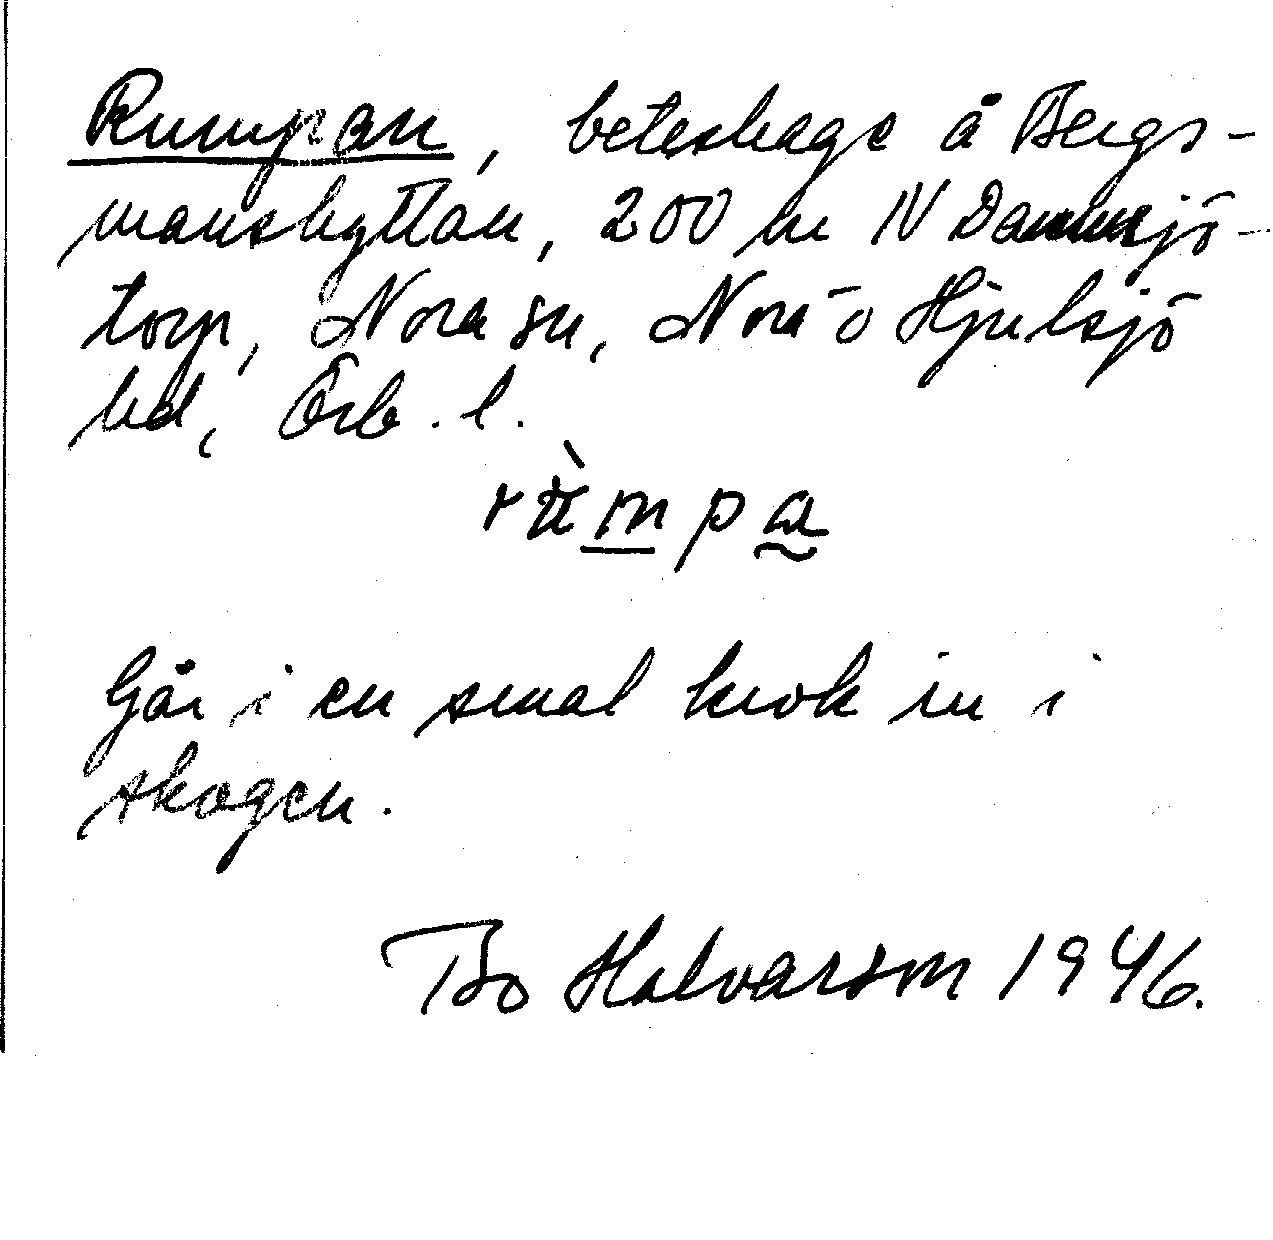 Rumpan, beteshage å Bergs-
manshyttan, 200 m N Dammsjö-
torp, Nora sn, Nora o Hjulsjö
hd, Örb. l.
Går i en smal krok in i
skogen.
Bo Halvarson 1946.